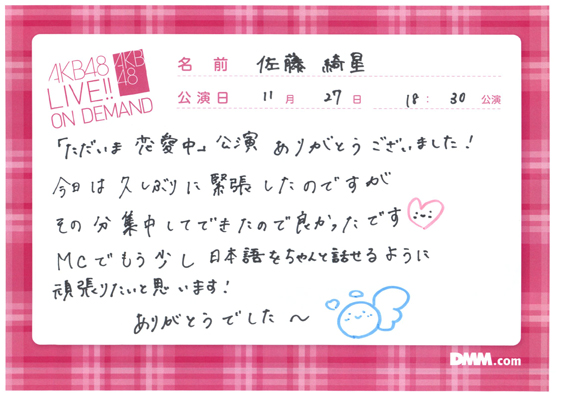 AKB48
LIVE!!
ON DEMAND
AKB
48
名前 佐藤 綺星
公演日 11月 27日 18:30公演
「ただいま 恋愛中」公演 ありがとうございました!
今日は久しぶりに緊張したのですが
その分集中してできたので良かったです
MCでもう少し日本語をちゃんと話せるように
頑張りたいと思います!
ありがとうでした〜
DMM.com